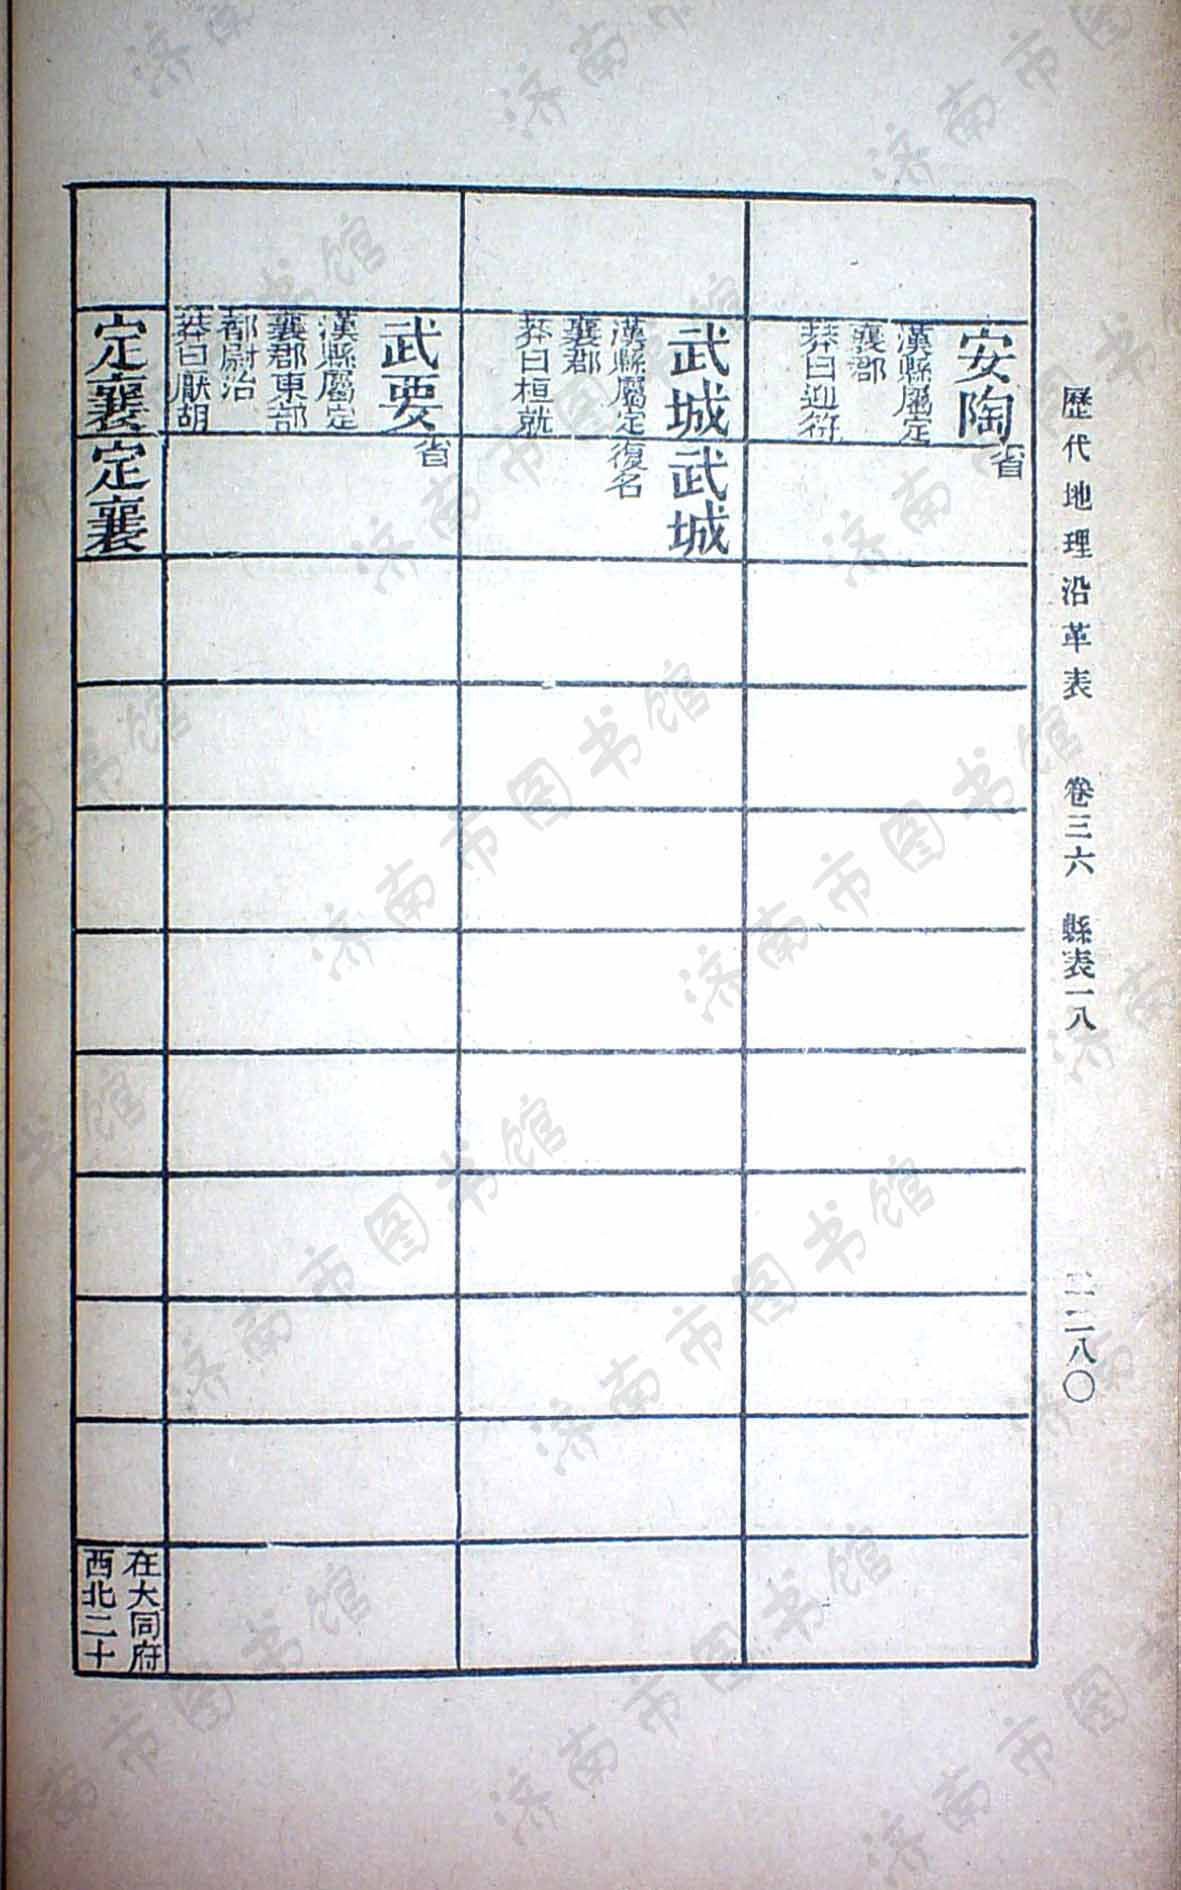 歷代地理沿革表　卷三六　縣表一八　二二八〇
安陶
漢縣屬定
襄郡
莽曰迎符
省
武城
漢縣屬定
襄郡
莽曰桓就
武城
復名
武要
漢縣屬定
襄郡東部
都尉治
莽曰厭胡
省
定襄
定襄
在大同府
西北二十
济南市图书馆